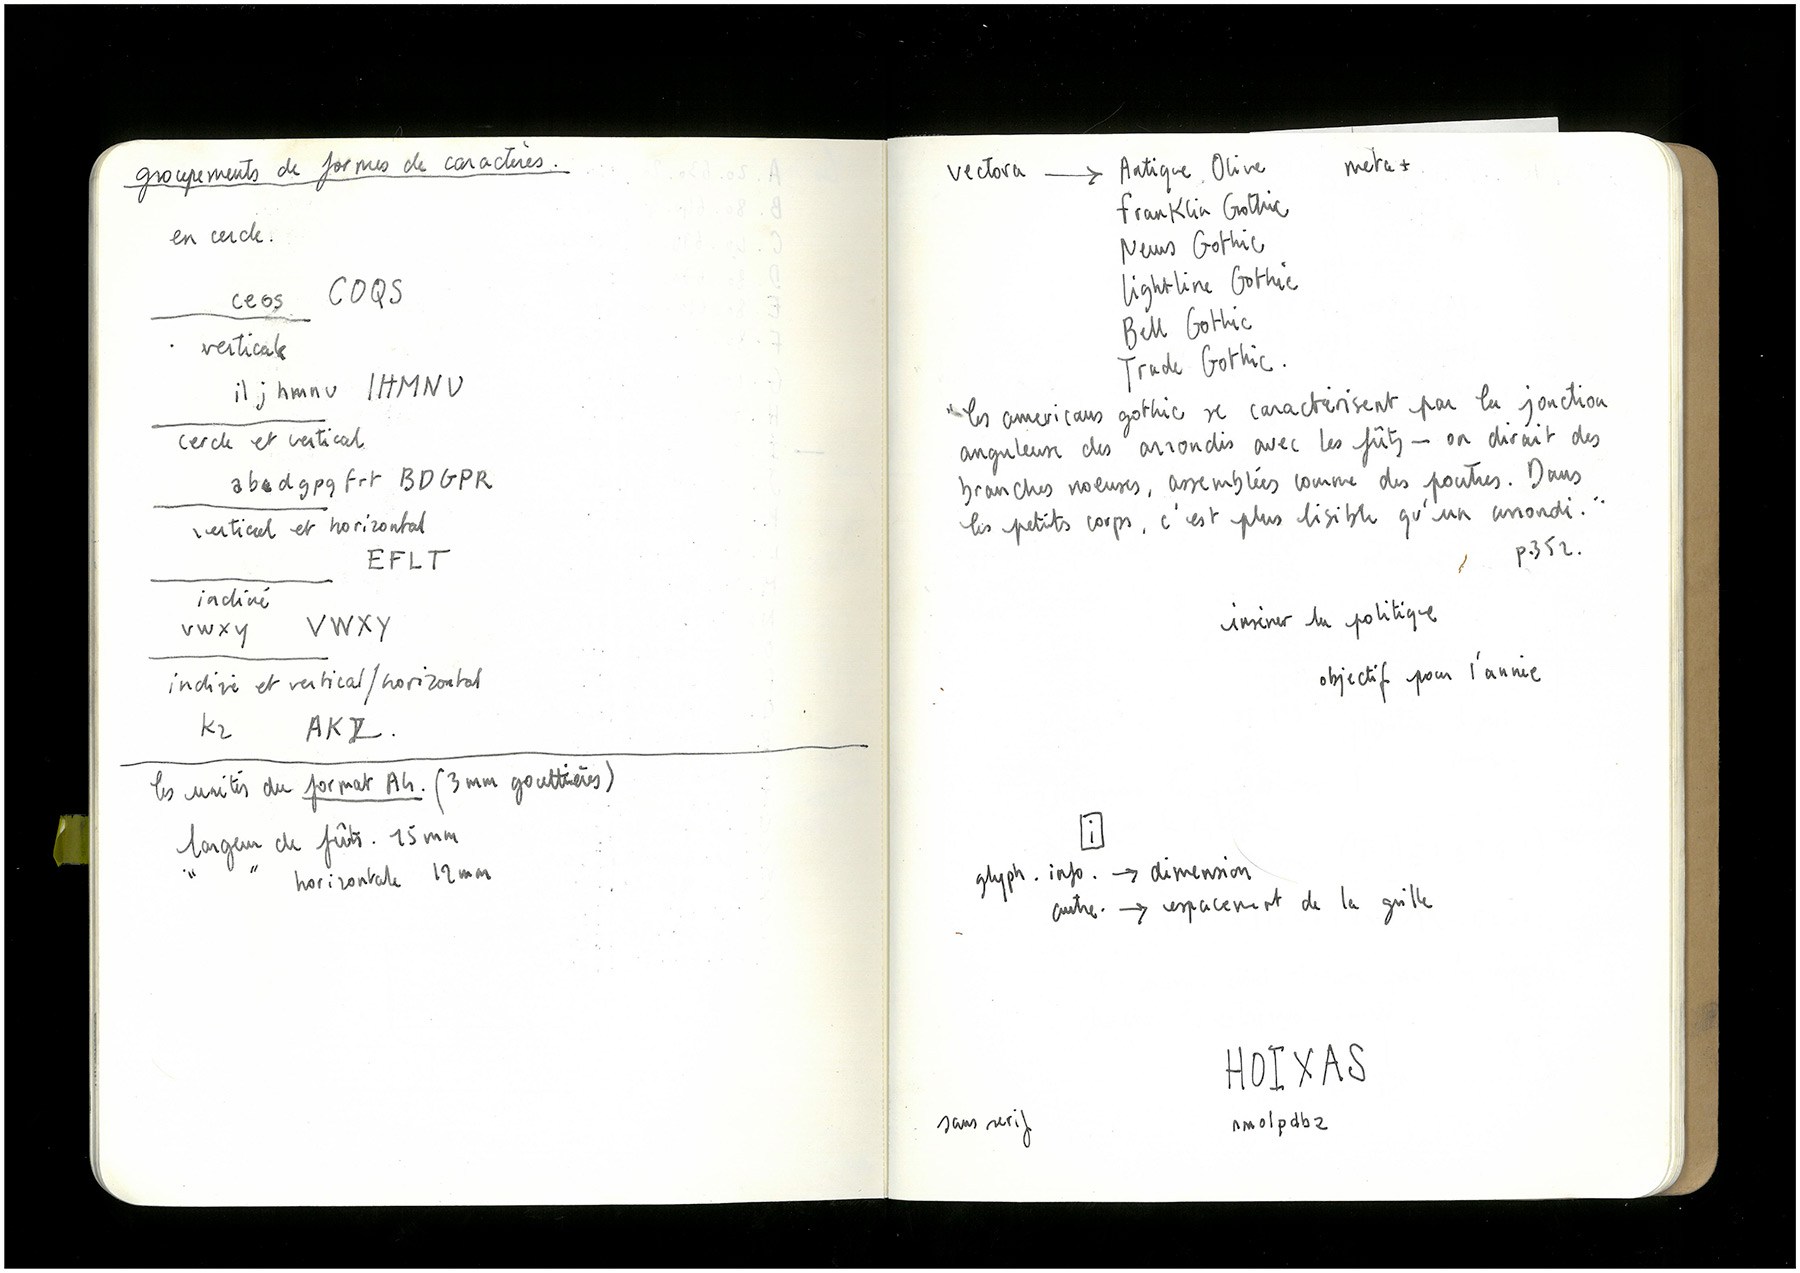 groupements de formes de caractères.
en cercle.
ceos COQS
verticale
il j hmnu IHMNU
cercle et vertical
abedgpqfrt BDGPR
vertical et horizontal
EFLT
incliné
vwxy VWXY
incliné et vertical/horizontal
kz AKZ.
les unités du format A4. (3mm gouttières)
largeur de fûts. 15mm
" " horizontale 12mm
vectora → Antique Olive meta+
Franklin Gothic
News Gothic
lightline Gothic
Bell Gothic
Trade Gothic.
"les americans gothic se caractérisent par la jonction
anguleuse des arrondis avec les fûts — on dirait des
branches noeuses, assemblées comme des poutres. Dans
les petits corps, c'est plus lisible qu'un arrondi."
p.352.
insérer la politique
objectif pour l'année
i
glyph. info. → dimension
autre. → espacement de la grille
HOIXAS
sans serif
nmolpdbz